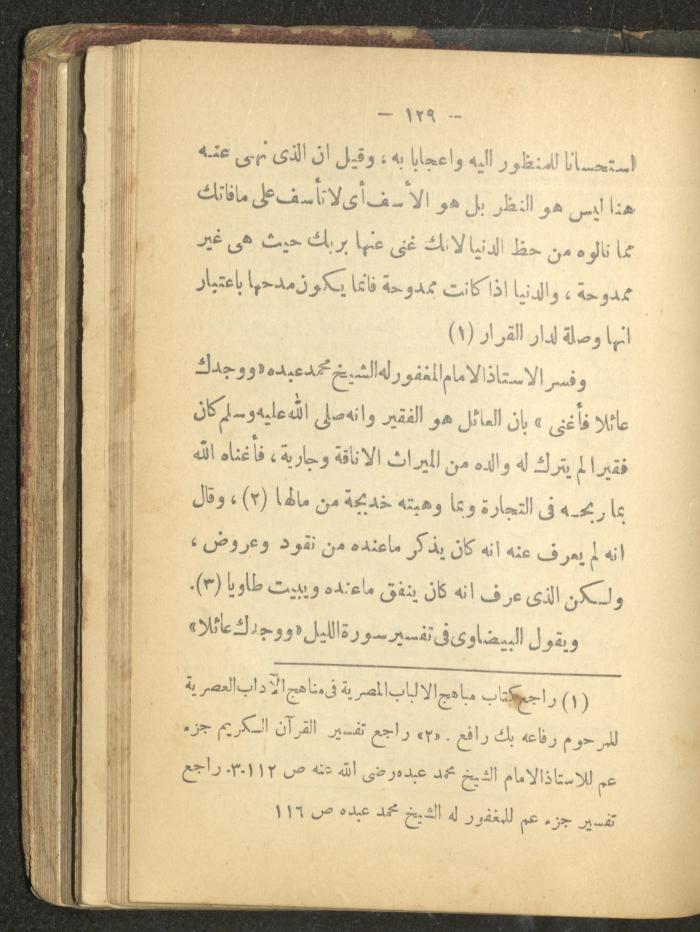 — ١٢٩ —
استحسانا للمنظور اليه واعجابا به ، وقيل ان الذى نهى عنه
هنا ليس هو النظر بل هو الأسف أى لا تأسف على مافاتك
مما نالوه من حظ الدنيا لانك غنى عنها بربك حيث هى غير
ممدوحة ، والدنيا اذا كانت ممدوحة فانما يكون مدحها باعتبار
انها وصلة لدار القرار (١)
وفسر الاستاذ الامام المغفور له الشيخ محمد عبده «ووجدك
عائلا فأغنى » بان العائل هو الفقير وانه صلى الله عليه وسلم كان
فقيرا لم يترك له والده من الميراث الا ناقة وجارية ، فأغناه الله
بما ربحه فى التجارة وبما وهبته خديجة من مالها (٢) ، وقال
انه لم يعرف عنه انه كان يذكر ماعنده من نقود وعروض ،
ولكن الذى عرف انه كان ينفق ماعنده ويبيت طاويا (٣).
ويقول البيضاوى فى تفسير سورة الليل «ووجدك عائلا»
(١) راجع كتاب مباهج الالباب المصرية فى مناهج الآداب العصرية
للمرحوم رفاعه بك رافع . «٢» راجع تفسير القرآن الكريم جزء
عم للاستاذ الامام الشيخ محمد عبده رضى الله عنه ص ١١٢ .٣. راجع
تفسير جزء عم للمغفور له الشيخ محمد عبده ص ١١٦